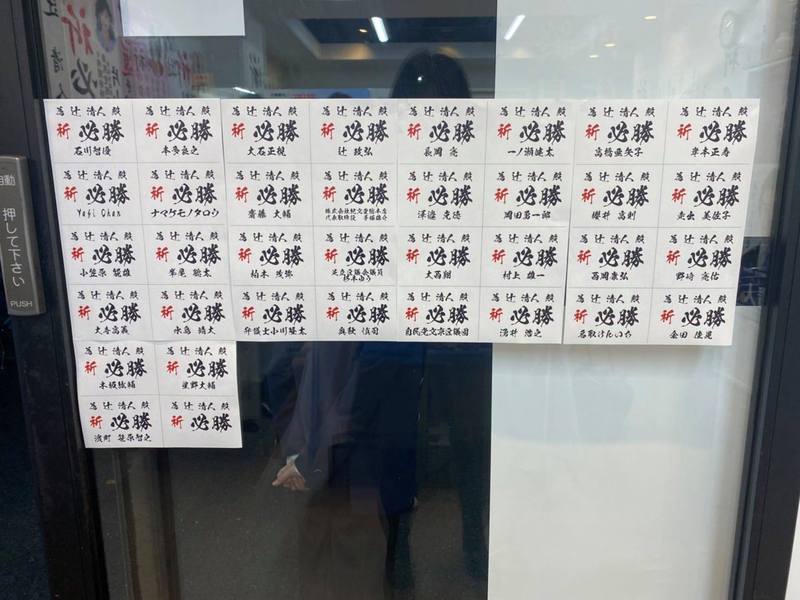 為 辻 清人 殿
祈 必勝
石川智優
為 辻 清人 殿
祈 必勝
本多良之
為 辻 清人 殿
祈 必勝
大石正規
為 辻 清人 殿
祈 必勝
辻 政弘
為 辻 清人 殿
祈 必勝
長岡 亮
為 辻 清人 殿
祈 必勝
一ノ瀬健太
為 辻 清人 殿
祈 必勝
高橋亜矢子
為 辻 清人 殿
祈 必勝
岸本正寿
祈 必勝
Yuji
祈 必勝
ナマタモノタロウ
祈 必勝
齋藤 大輔
祈 必勝
株式会社
代表取締役
祈 必勝
祈 必勝
岡田勇一郎
祈 必勝
櫻井
祈 必勝
走出 美佐子
為 辻 清人 殿
祈 必勝
小笠原 龍雄
為 辻 清人 殿
祈 必勝
為 辻 清人 殿
祈 必勝
柏木 茂弥
為 辻 清人 殿
祈 必勝
足立区議会議員
杉本ゆう
為 辻 清人 殿
祈 必勝
大西翔
為 辻 清人 殿
祈 必勝
村上 雄一
為 辻 清人 殿
祈 必勝
西岡康弘
為 辻 清人 殿
祈 必勝
野崎 亮佑
為 辻 清人 殿
祈 必勝
為 辻 清人 殿
祈 必勝
水島 靖大
為 辻 清人 殿
祈 必勝
弁護士小川隆太
為 辻 清人 殿
祈 必勝
慎司
為 辻 清人 殿
祈 必勝
自民党文京区議団
為 辻 清人 殿
祈 必勝
湯井 浩之
為 辻 清人 殿
祈 必勝
名取けんいち
為 辻 清人 殿
祈 必勝
金田
為 辻 清人 殿
祈 必勝
木坂拡輔
為 辻 清人 殿
祈 必勝
星野大輔
為 辻 清人 殿
祈 必勝
笹原智之
為 辻 清人 殿
祈 必勝
自動
押して下さい
PUSH